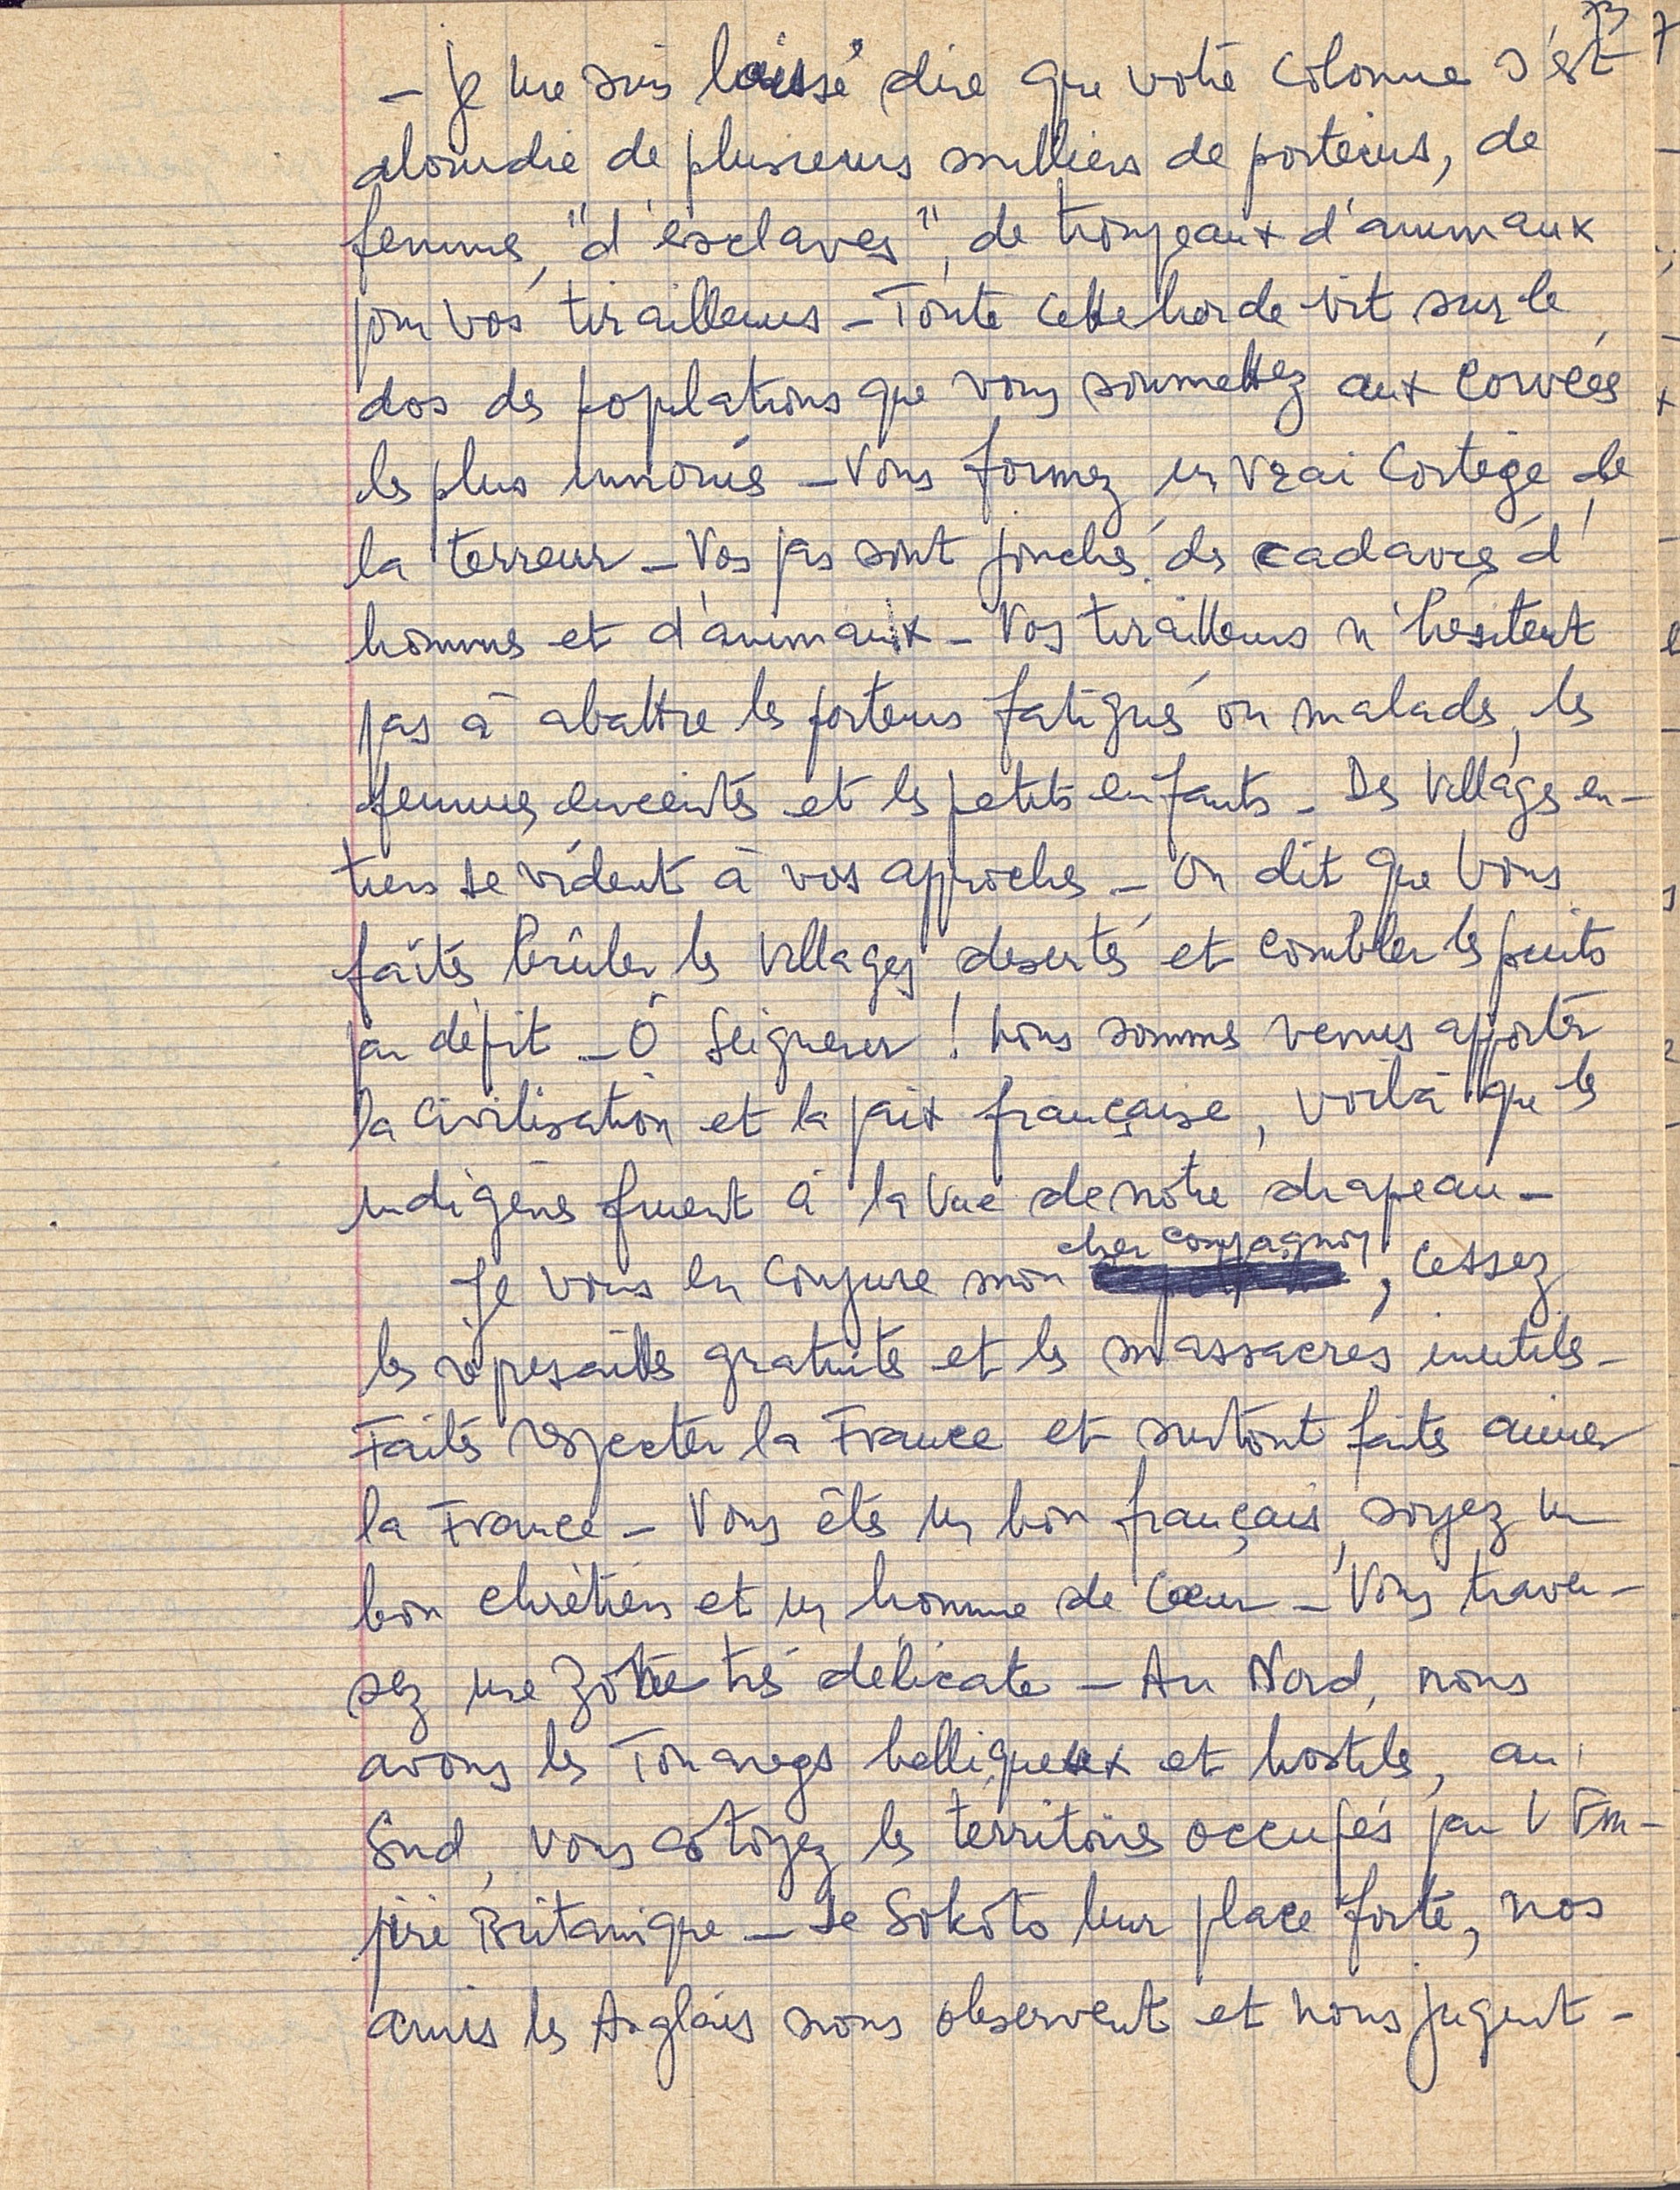 - Je me suis laissé dire que votre colonne s'est
alourdie de plusieurs milliers de porteurs, de
femmes, "d'esclaves", de troupeaux d'animaux
pour vos tirailleurs - Toute cette horde vit sur le
dos des populations que vous soumettez aux corvées
les plus innomés - Vous formez un vrai Cortège de
la terreur - Vos pas sont jonchés de cadavres d'
hommes et d'animaux - Vos tirailleurs n'hésitent
pas à abattre les porteurs fatigués ou malades, les
femmes enceintes et les petits enfants - Des villages en-
tiers se vident à vos approches - On dit que vous
faites brûler les villages désertés et combler les puits
par dépit - Ô Seigneur ! nous sommes venus apporter
la civilisation et la paix française, voilà que les
indigènes fuient à la vue de notre drapeau -
Je vous en conjure mon cher compagnon, cessez
les représailles gratuites et les massacres inutiles -
Faites respecter la France et surtout faites aimer
la France - Vous êtes un bon français, soyez un
bon chrétien et un homme de Cœur - Vous traver-
sez une zone très délicate - Au Nord, nous
avons les Touaregs belliqueux et hostiles, au
Sud, vous côtoyez les territoires occupés par l'Em-
pire Britanique - De Sokoto leur place forte, nos
amis les Anglais nous observent et nous jugent -